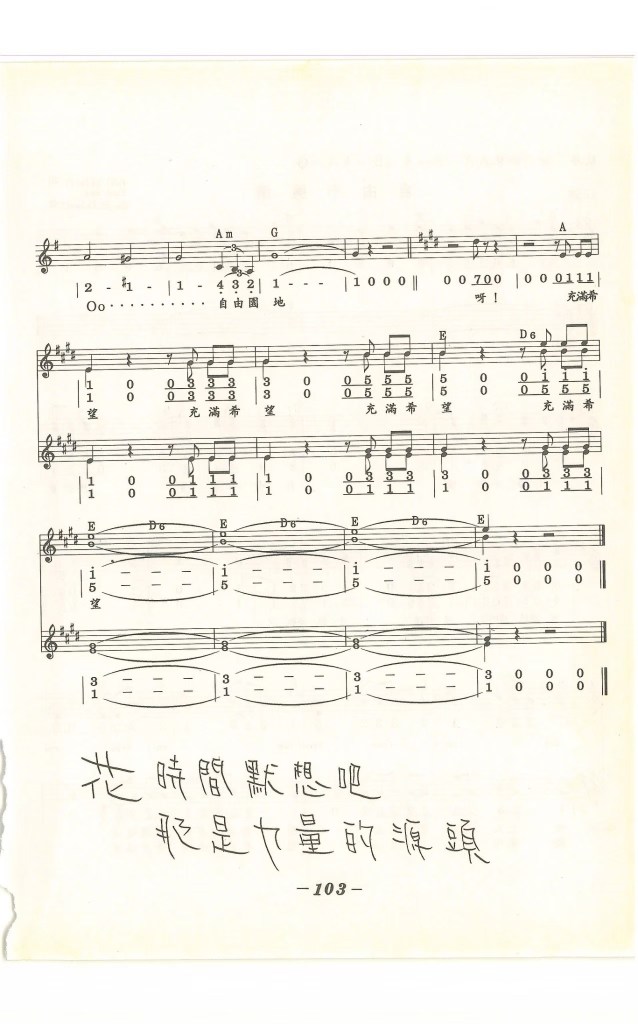 Am G
3
3
| 2 - #1 - | 1 - 4 3 2 | 1 - - - | 1 0 0 0 ‖ 0 0 7 0 0 | 0 0 0 1 1 1 |
A
Oo · · · · · · · · · · 自由園地 呀！ 充滿希
E D6
1 0 0 3 3 3 | 3 0 0 5 5 5 | 5 0 0 i i i |
1 0 0 3 3 3 | 3 0 0 5 5 5 | 5 0 0 1 1 1 |
望 充滿希 望 充滿希 望 充滿希
1 0 0 1 1 1 | 1 0 0 3 3 3 | 3 0 0 3 3 3 |
1 0 0 1 1 1 | 1 0 0 3 3 3 | 3 0 0 1 1 1 |
E D6 E D6 E D6 E
i - - - | i - - - | i - - - | i 0 0 0
5 - - - | 5 - - - | 5 - - - | 5 0 0 0
望
3 - - - | 3 - - - | 3 - - - | 3 0 0 0
1 - - - | 1 - - - | 1 - - - | 1 0 0 0
花時間默想吧
那是力量的源頭
-103-